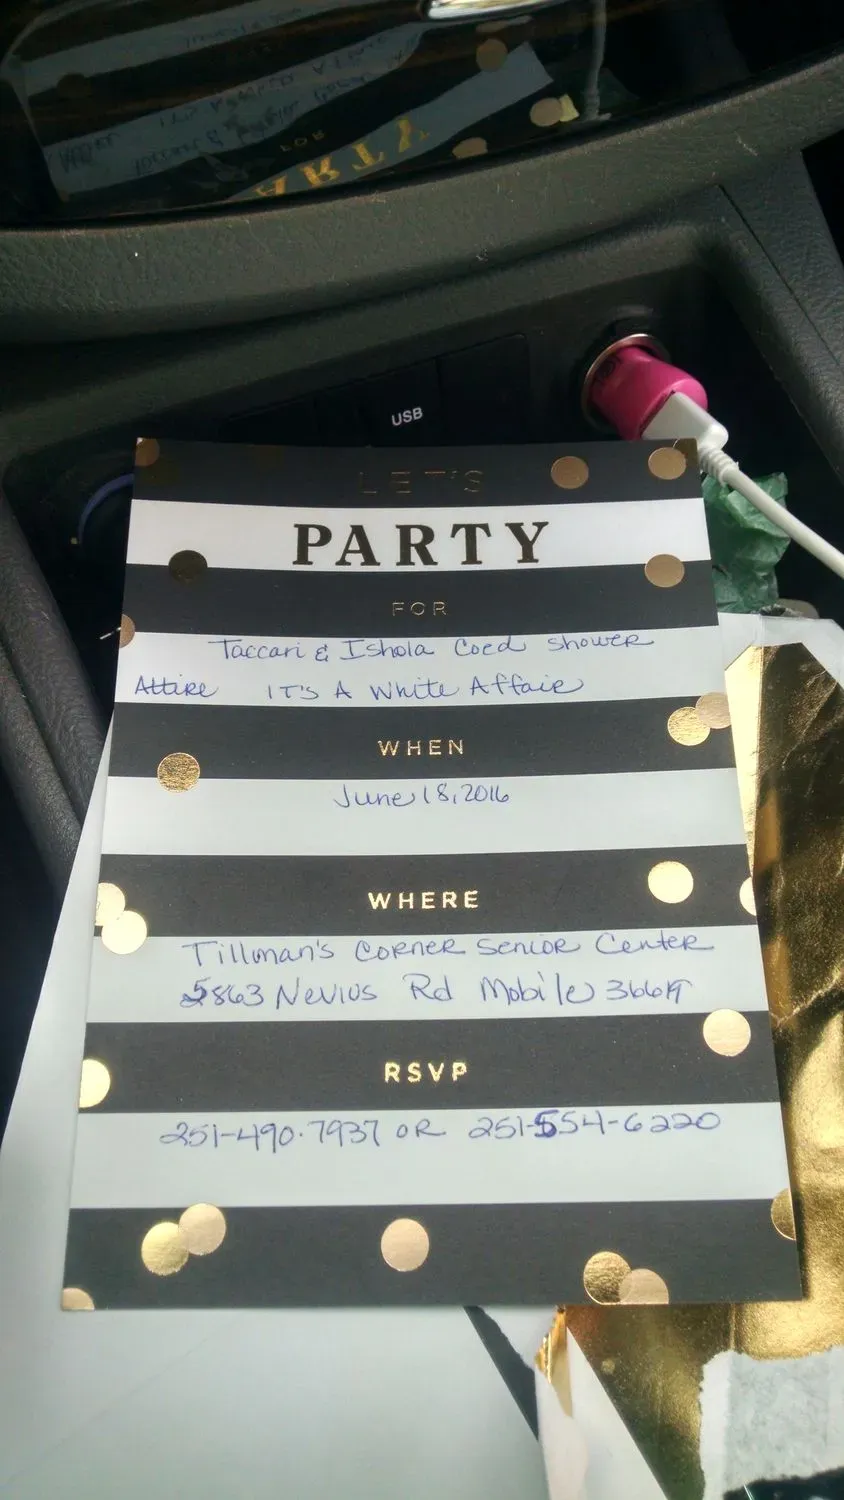 USB
LET'S
PARTY
FOR
Taccari & Ishola Coed Shower
Attire IT'S A White Affair
WHEN
June 18, 2016
WHERE
Tillman's Corner Senior Center
5863 Nevius Rd Mobile 36619
RSVP
251-490-7937 OR 251-554-6220